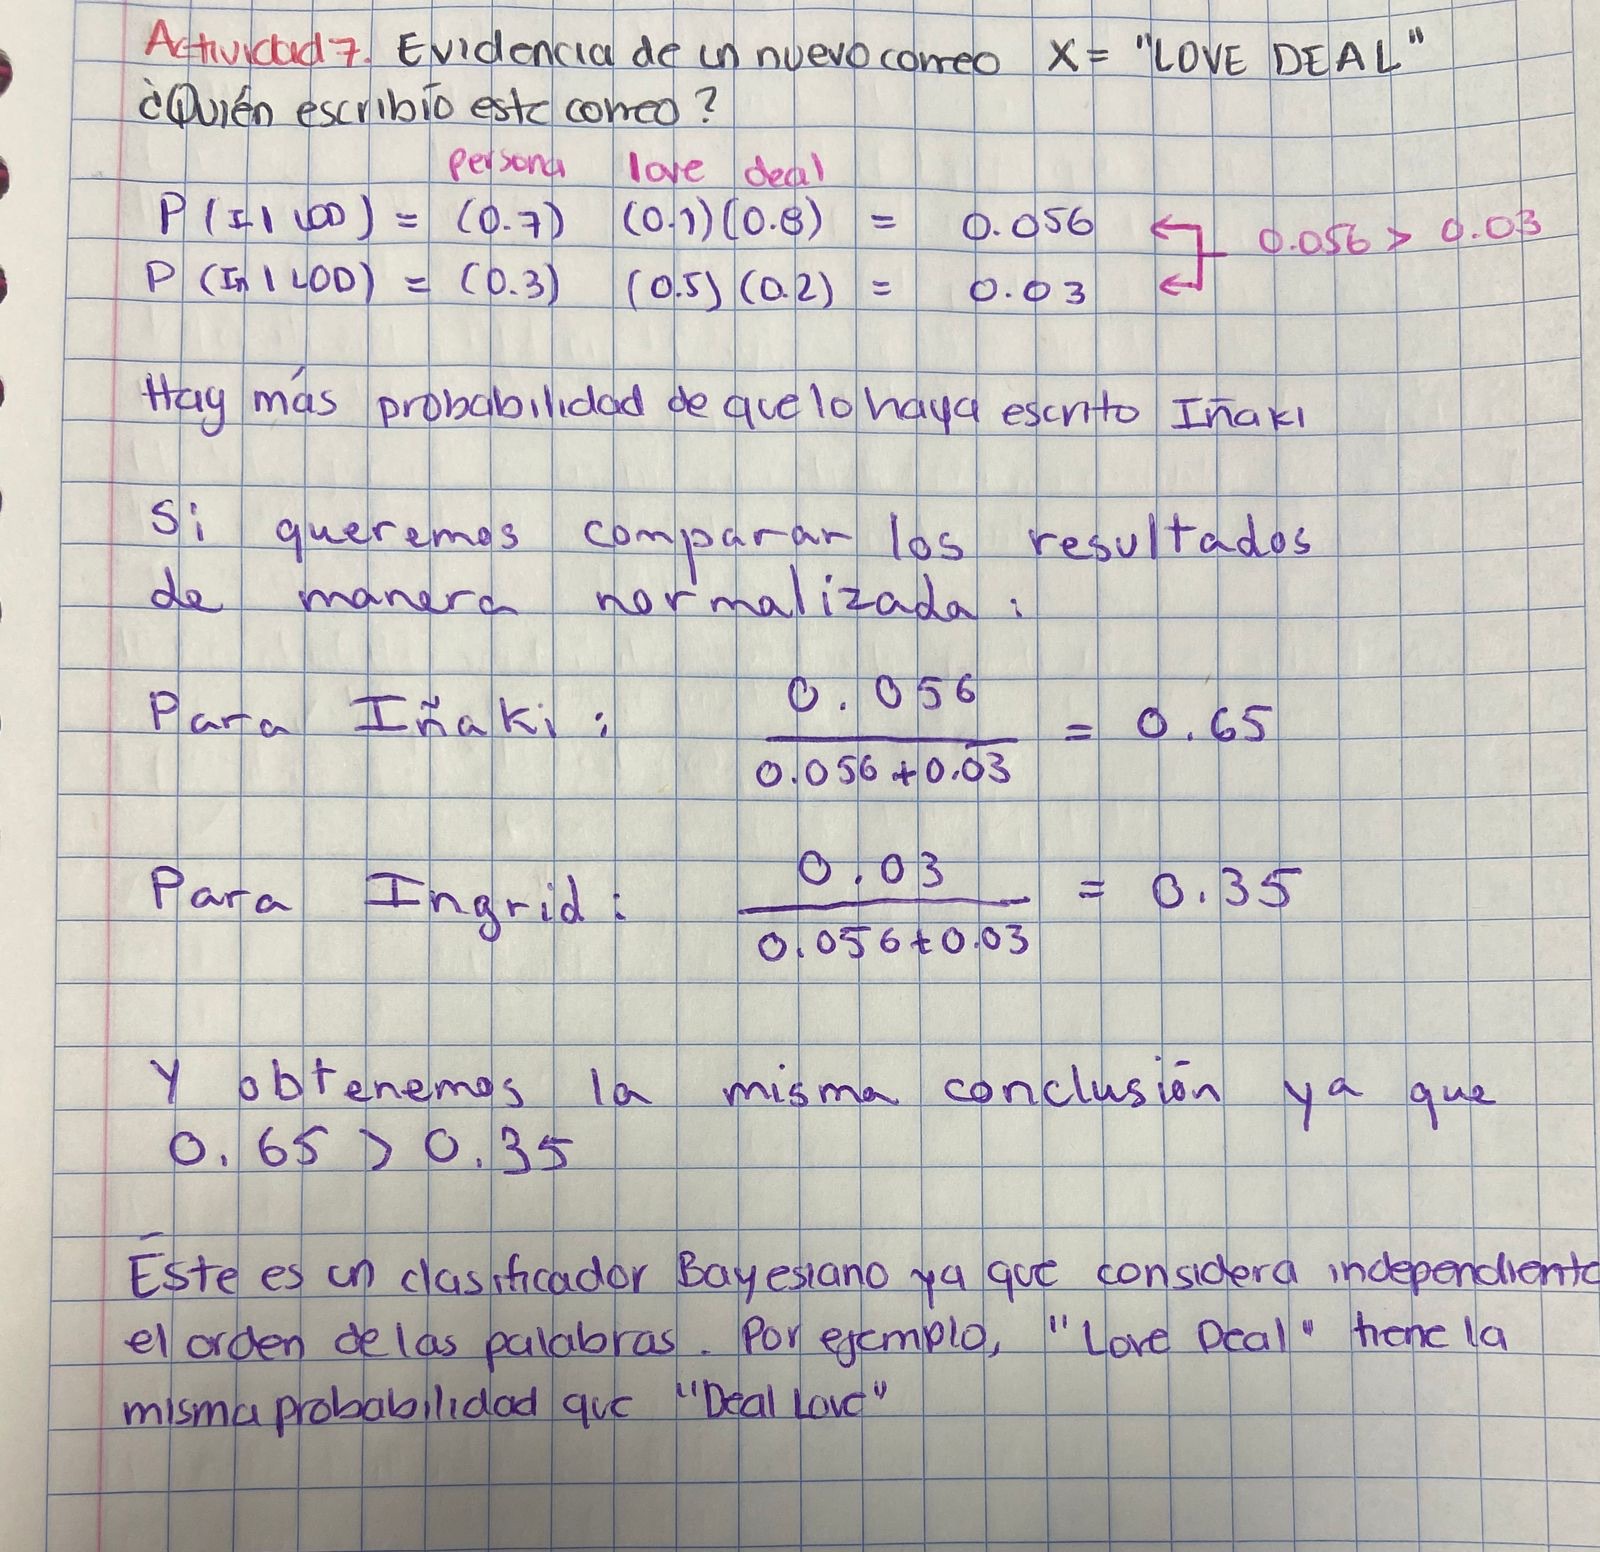 Actividad 7. Evidencia de un nuevo correo X = "LOVE DEAL"
¿Quién escribío este correo?
persona love deal
P(I | LOD) = (0.7) (0.1)(0.8) = 0.056 0.056 > 0.03
P(In | LOD) = (0.3) (0.5)(0.2) = 0.03
Hay más probabilidad de que lo haya escrito Iñaki
Si queremos comparar los resultados
de manera normalizada:
Para Iñaki: 0.056 / 0.056+0.03 = 0.65
Para Ingrid: 0.03 / 0.056+0.03 = 0.35
Y obtenemos la misma conclusión ya que
0.65 > 0.35
Éste es un clasificador Bayesiano ya que considera independiente
el orden de las palabras. Por ejemplo, "Love Deal" tiene la
misma probabilidad que "Deal Love"